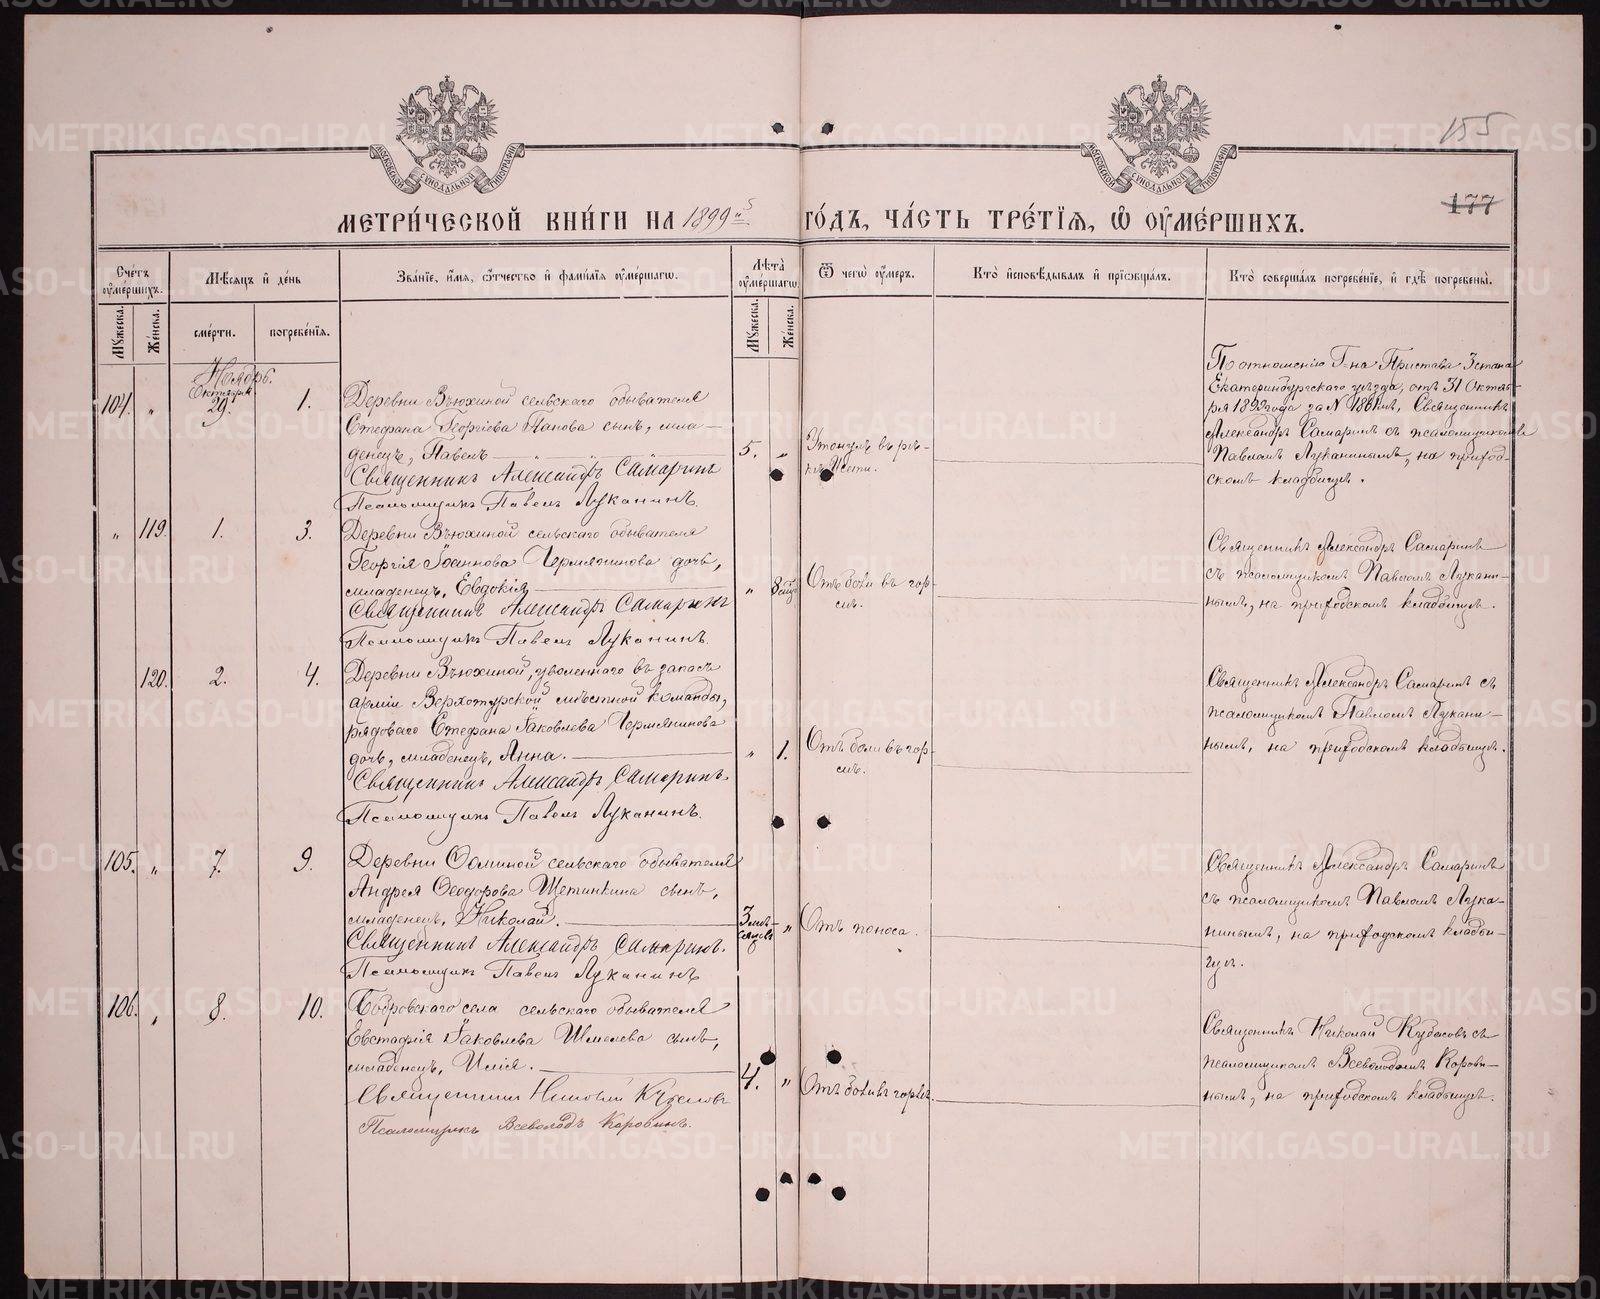 155
177
МОСКОВСКОЙ СѴНОДАЛЬНОЙ ТИПОГРАФІИ
МОСКОВСКОЙ СѴНОДАЛЬНОЙ ТИПОГРАФІИ
МЕТРИ́ЧЕСКОЙ КНИ́ГИ НА 1899й ГО́ДЪ, ЧА́СТЬ ТРЕ́ТЇЯ, Ѡ ОУМЕ́РШИХЪ.
Сче́тъ оуме́ршихъ.
Мѣсяцъ и де́нь
Зва́нїе, и́мя, ѻ́тчество и фами́лїя оуме́ршагѡ.
Лѣта̀ оуме́ршагѡ
Ѿ чегѡ̀ оу́меръ.
Кто̀ исповѣ́дывалъ и прїѡбща́лъ.
Кто̀ соверша́лъ погребе́нїе, и гдѣ̀ погребены̀.
Мꙋ́жеска.
Же́нска.
сме́рти.
погребе́нїя.
Мꙋ́жеска.
Же́нска.
Ноябрь.
104. " Октября 29. 1.
Деревни Вьюхиной сельскаго обывателя
Стефана Георгіева Панова сынъ, мла-
денецъ, Павелъ
Священникъ Александръ Самаринъ
Псаломщикъ Павелъ Луканинъ.
5. "
Утонулъ въ рѣ-
кѣ Исети.
По отношенію Г-на Пристава 3 стана
Екатеринбургскаго уѣзда, отъ 31 Октяб-
ря 1899 года за №
Священникъ
Александръ Самаринъ съ псаломщикомъ
Павломъ Луканинымъ, на приход-
скомъ кладбищѣ.
" 119. 1. 3.
Деревни Вьюхиной сельскаго обывателя
Георгія Іоаннова Чермянинова дочь,
младенецъ, Евдокія
Священникъ Александръ Самаринъ
Псаломщикъ Павелъ Луканинъ.
" 8
Отъ боли въ гор-
лѣ.
Священникъ Александръ Самаринъ
съ псаломщикомъ Павломъ Лукани-
нымъ, на приходскомъ кладбищѣ.
120. 2. 4.
Деревни Вьюхиной, уволеннаго въ запасъ
арміи Верхотурской мѣстной команды,
рядоваго Стефана Іаковлева Чермянинова
дочь, младенецъ, Анна.
Священникъ Александръ Самаринъ.
Псаломщикъ Павелъ Луканинъ.
" 1.
Отъ боли въ гор-
лѣ.
Священникъ Александръ Самаринъ съ
псаломщикомъ Павломъ Лукани-
нымъ, на приходскомъ кладбищѣ.
105. " 7. 9.
Деревни Ѳоминой сельскаго обывателя
Андрея Ѳеодорова Щетинкина сынъ,
младенецъ, Николай.
Священникъ Александръ Самаринъ.
Псаломщикъ Павелъ Луканинъ
3 мѣ-
сяцовъ "
Отъ поноса.
Священникъ Александръ Самаринъ
съ псаломщикомъ Павломъ Лука-
нинымъ, на приходскомъ кладби-
щѣ.
106. " 8. 10.
Бобровскаго села сельскаго обывателя
Евстафія Іаковлева Шмелева сынъ,
младенецъ, Илія.
Священникъ Николай Кубасовъ
Псаломщикъ Всеволодъ Коровинъ.
4. "
Отъ боли въ горлѣ.
Священникъ Николай Кубасовъ съ
псаломщикомъ Всеволодомъ Корови-
нымъ, на приходскомъ кладбищѣ.
METRIKI.GASO-URAL.RU